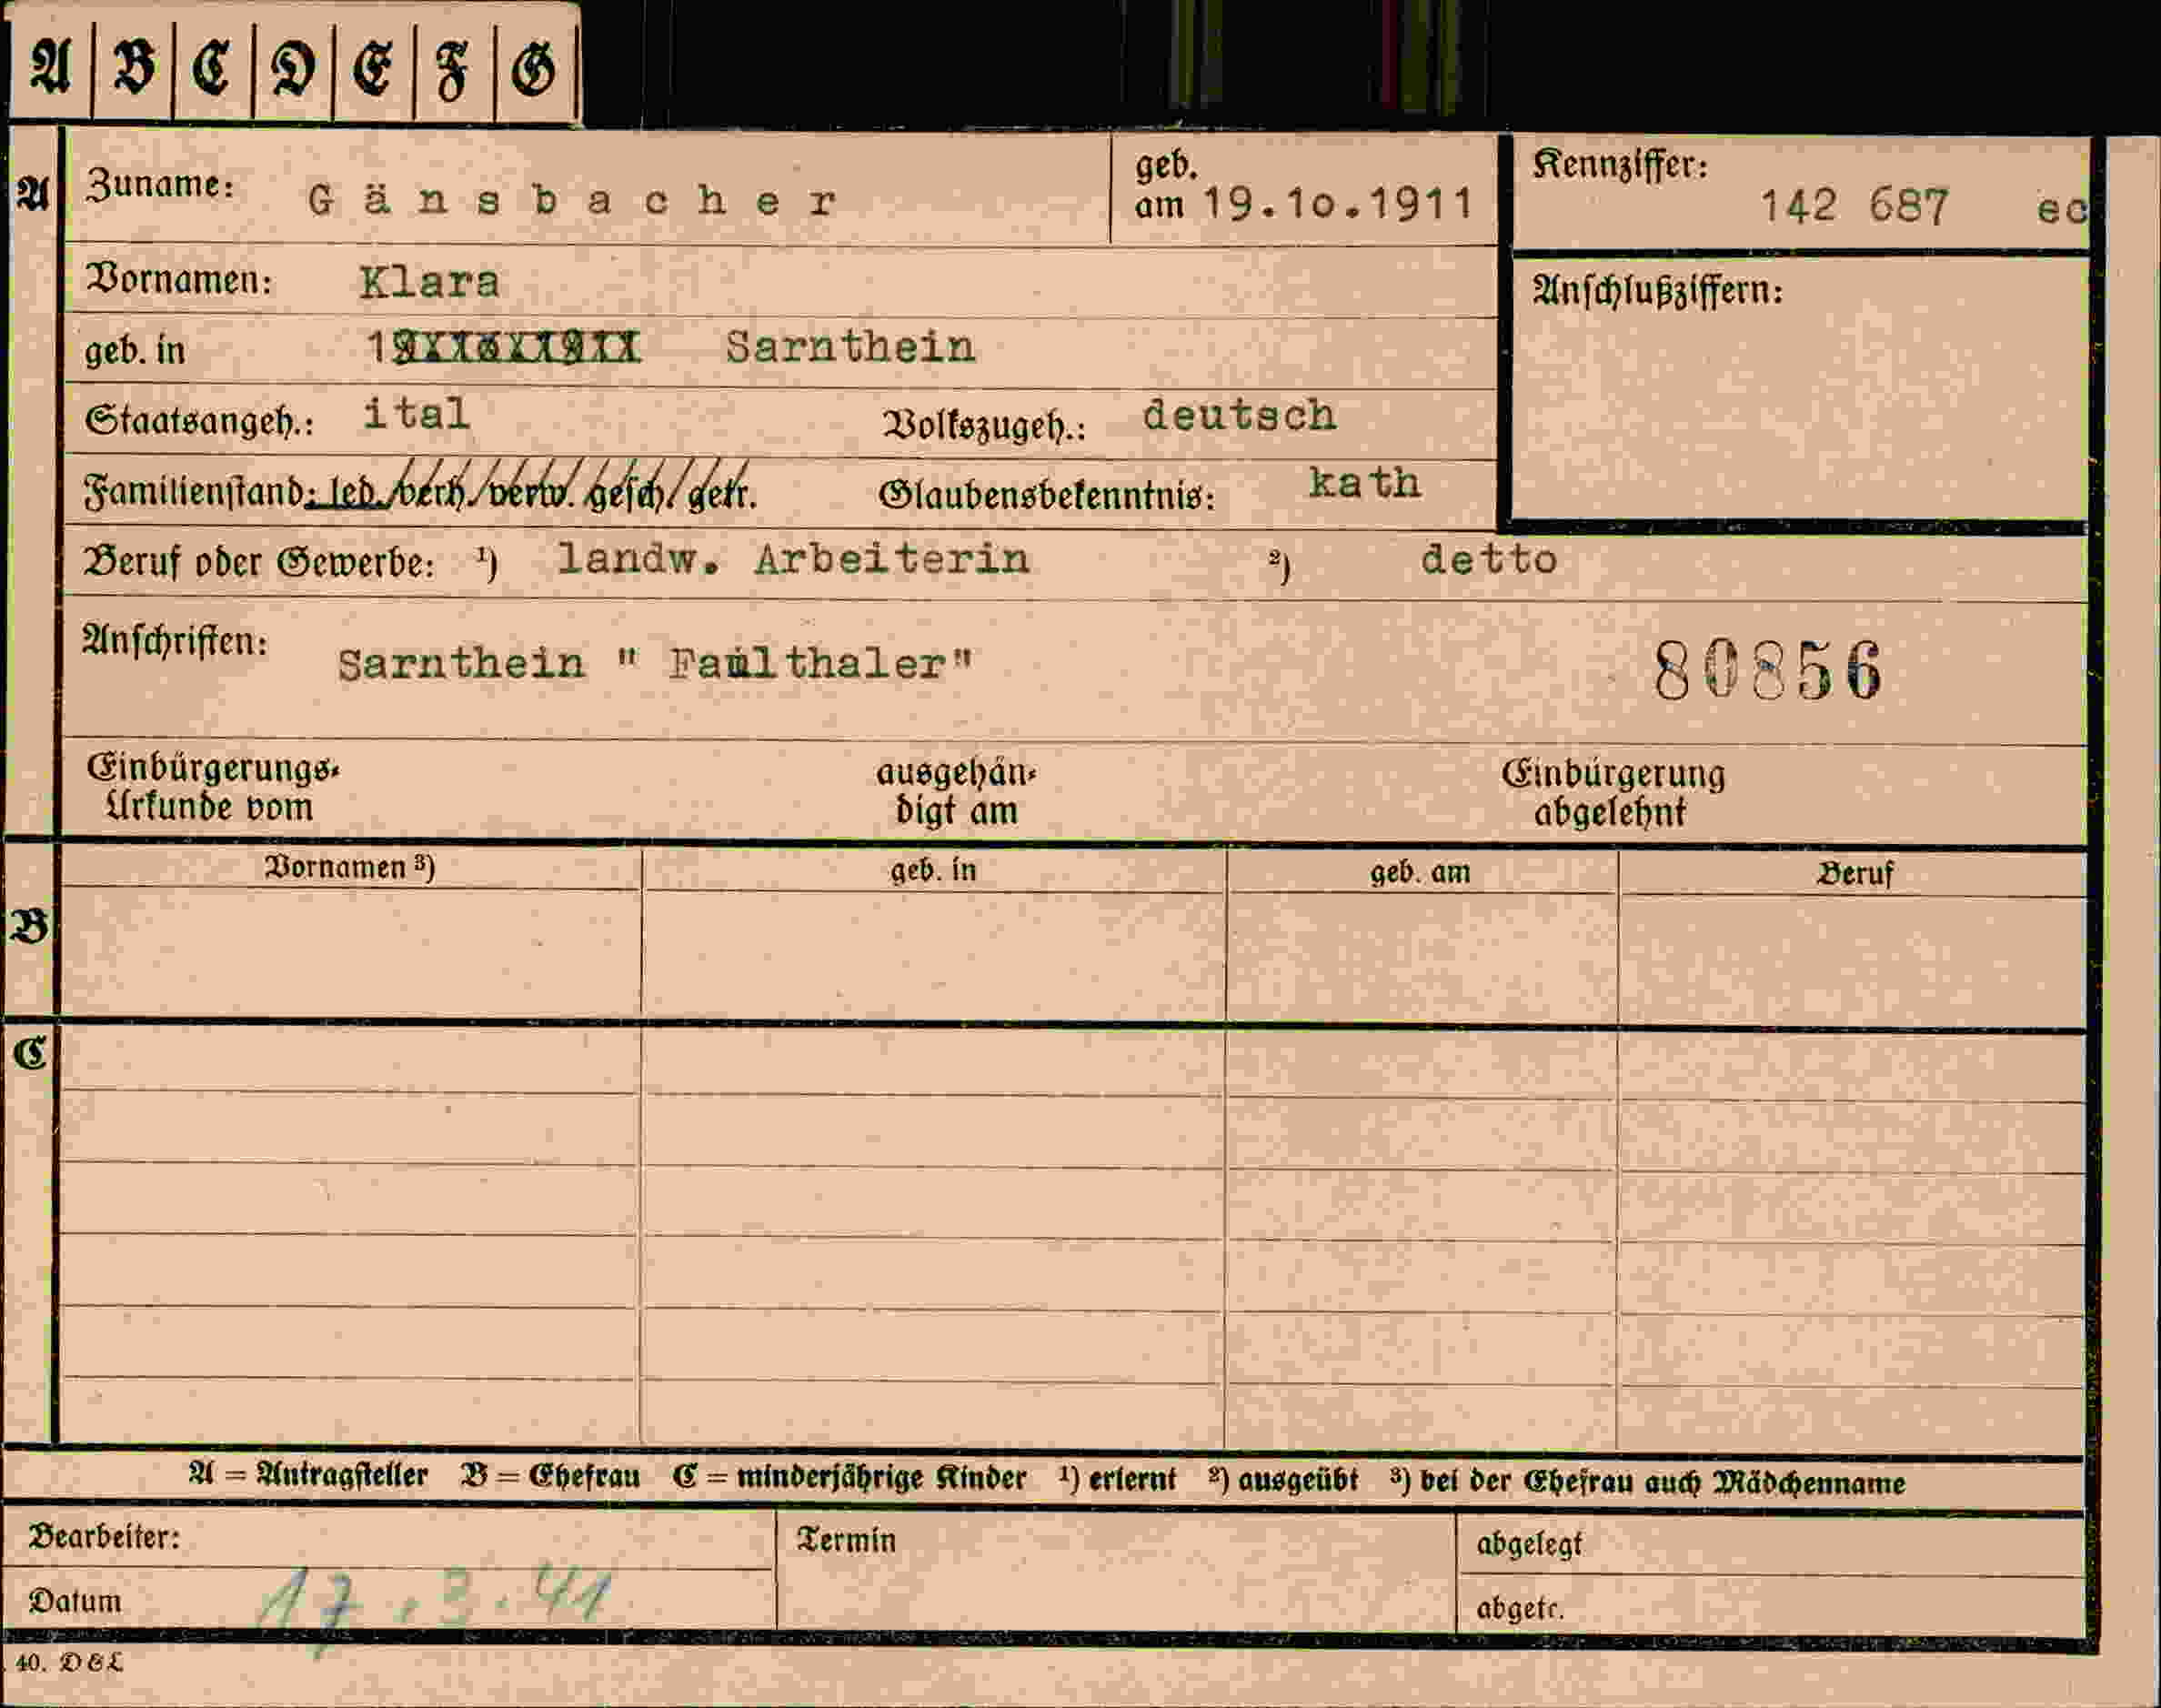 A B C D E F G
A Zuname: Gänsbacher geb. am 19.10.1911 Kennziffer: 142 687 ec
Vornamen: Klara Anschlußziffern:
geb. in Sarnthein
Staatsangeh.: ital Volkszugeh.: deutsch
Familienstand: led./verh./verw./gesch./getr. Glaubensbekenntnis: kath
Beruf oder Gewerbe: ¹) landw. Arbeiterin ²) detto
Anschriften: Sarnthein " Faulthaler" 80856
Einbürgerungs- ausgehän- Einbürgerung
Urkunde vom digt am abgelehnt
Vornamen ³) geb. in geb. am Beruf
B
C
A = Antragsteller B = Ehefrau C = minderjährige Kinder ¹) erlernt ²) ausgeübt ³) bei der Ehefrau auch Mädchenname
Bearbeiter: Termin abgelegt
Datum 17.3.41 abgetr.
40. D&L